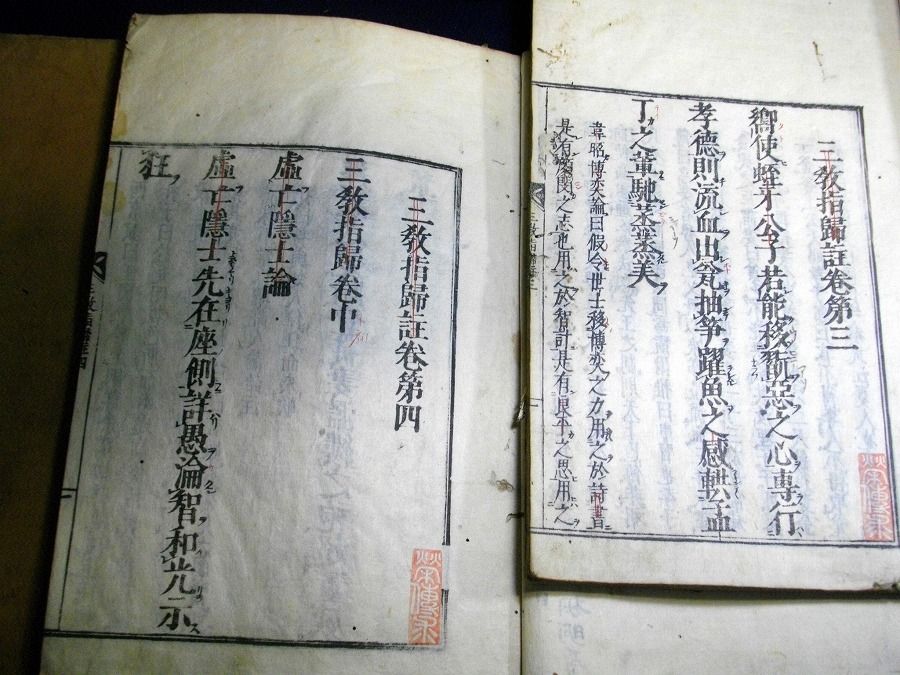 三教指歸註卷第三
卿使蛭牙公子若能移翫惡之心專行
孝德則流血出瓮抽笋躍魚之感軼孟
丁之輩馳蒸蒸美
韋昭博奕論曰假令世士移博奕之力用之於詩書
是有顏閔之志也用之於智計是有良平之思用之
三教指歸註卷第四
三教指歸卷中
虛亡隱士論
虛亡隱士先在座側詳愚淪智和光示
狂